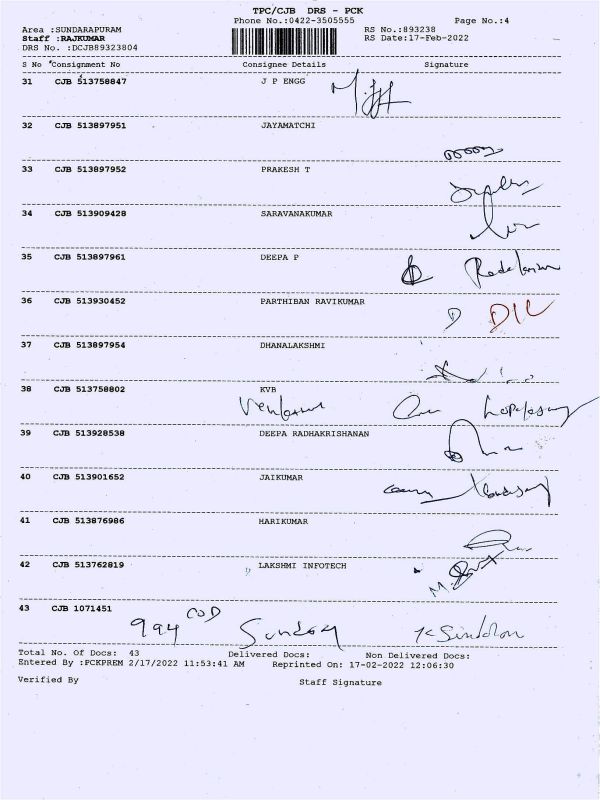 TPC/CJB DRS - PCK
Phone No.:0422-3505555 Page No.:4
Area :SUNDARAPURAM RS No.:893238
Staff :RAJKUMAR RS Date:17-Feb-2022
DRS No. :DCJB89323804
S No *Consignment No Consignee Details Signature
31 CJB 513758847 J P ENGG
32 CJB 513897951 JAYAMATCHI
33 CJB 513897952 PRAKESH T
34 CJB 513909428 SARAVANAKUMAR
35 CJB 513897961 DEEPA P
36 CJB 513930452 PARTHIBAN RAVIKUMAR
37 CJB 513897954 DHANALAKSHMI
38 CJB 513758802 KVB
39 CJB 513928538 DEEPA RADHAKRISHANAN
40 CJB 513901652 JAIKUMAR
41 CJB 513876986 HARIKUMAR
42 CJB 513762819 LAKSHMI INFOTECH
43 CJB 1071451
994 COD
Total No. Of Docs: 43 Delivered Docs: Non Delivered Docs:
Entered By :PCKPREM 2/17/2022 11:53:41 AM Reprinted On: 17-02-2022 12:06:30
Verified By Staff Signature